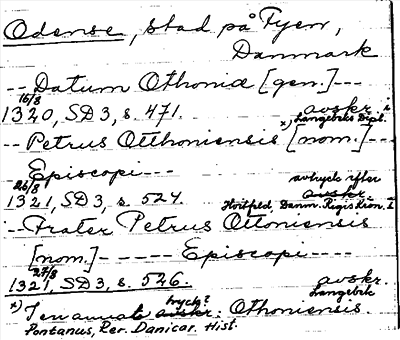 Odense, stad på Fyen,
Danmark
-- Datum Othonia [gen.] ---
16/8
1320, SD 3, s. 471. avskr. i
x) Langebeks Dipl.
-- Petrus Otthoniensis [nom.] --
Episcopi --- avtryck efter
26/8 avskr.
1321, SD 3, s. 524. Hvitfeld, Danm. Regis Krøn. I
-- Frater Petrus Ottoniensis
[nom.] ----- Episcopi ----
27/8
1321, SD 3, s. 526. avskr.
Langebek
x) I en annat tryck? avskr: Othoniensis.
Pontanus, Rer. Danicar. Hist.